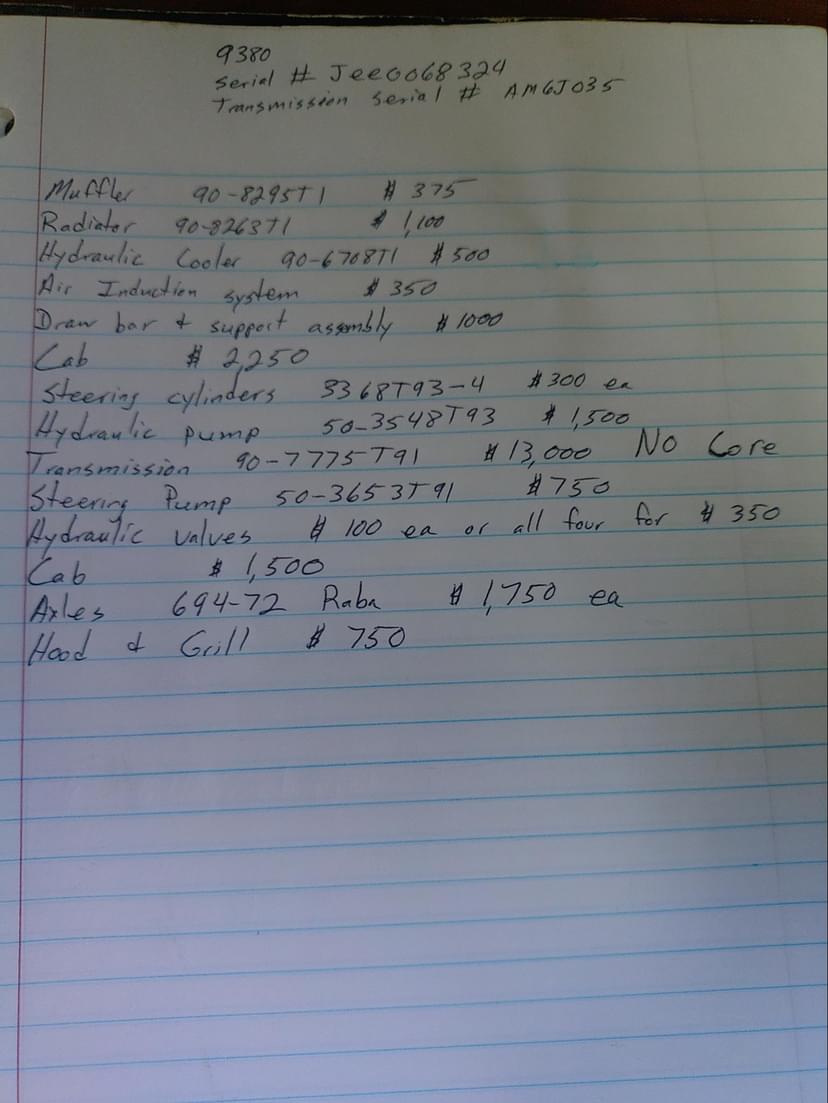 9380
Serial # Jee0068324
Transmission Serial # AM6J035
Muffler 90-8295T1 $ 375
Radiator 90-8263T1 $ 1,100
Hydraulic Cooler 90-6708T1 $ 500
Air Induction system $ 350
Draw bar & support assembly $ 1000
Cab $ 2,250
Steering cylinders 3368T93-4 $300 ea
Hydraulic pump 50-3548T93 $ 1,500
Transmission 90-7775T91 $ 13,000 No Core
Steering Pump 50-3653T91 $750
Hydraulic valves $ 100 ea or all four for $ 350
Cab $ 1,500
Axles 694-72 Raba $ 1,750 ea
Hood & Grill $ 750